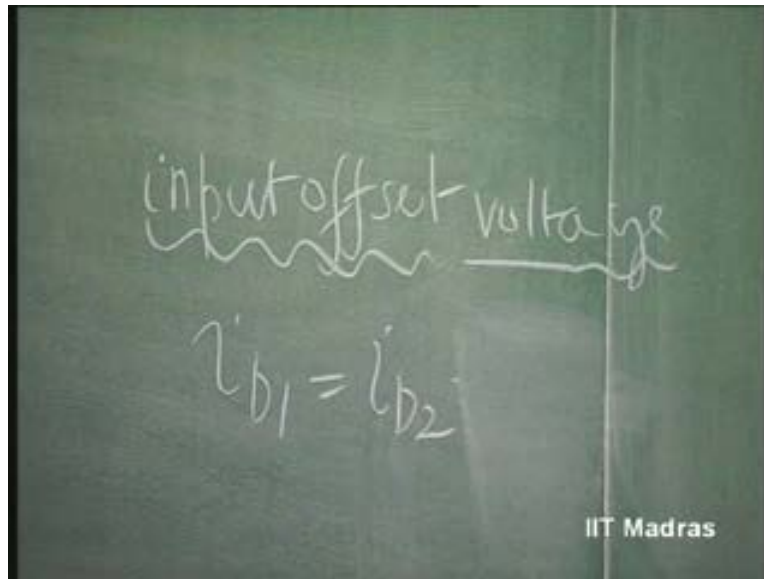 input offset voltage
i_D1 = i_D2
IIT Madras